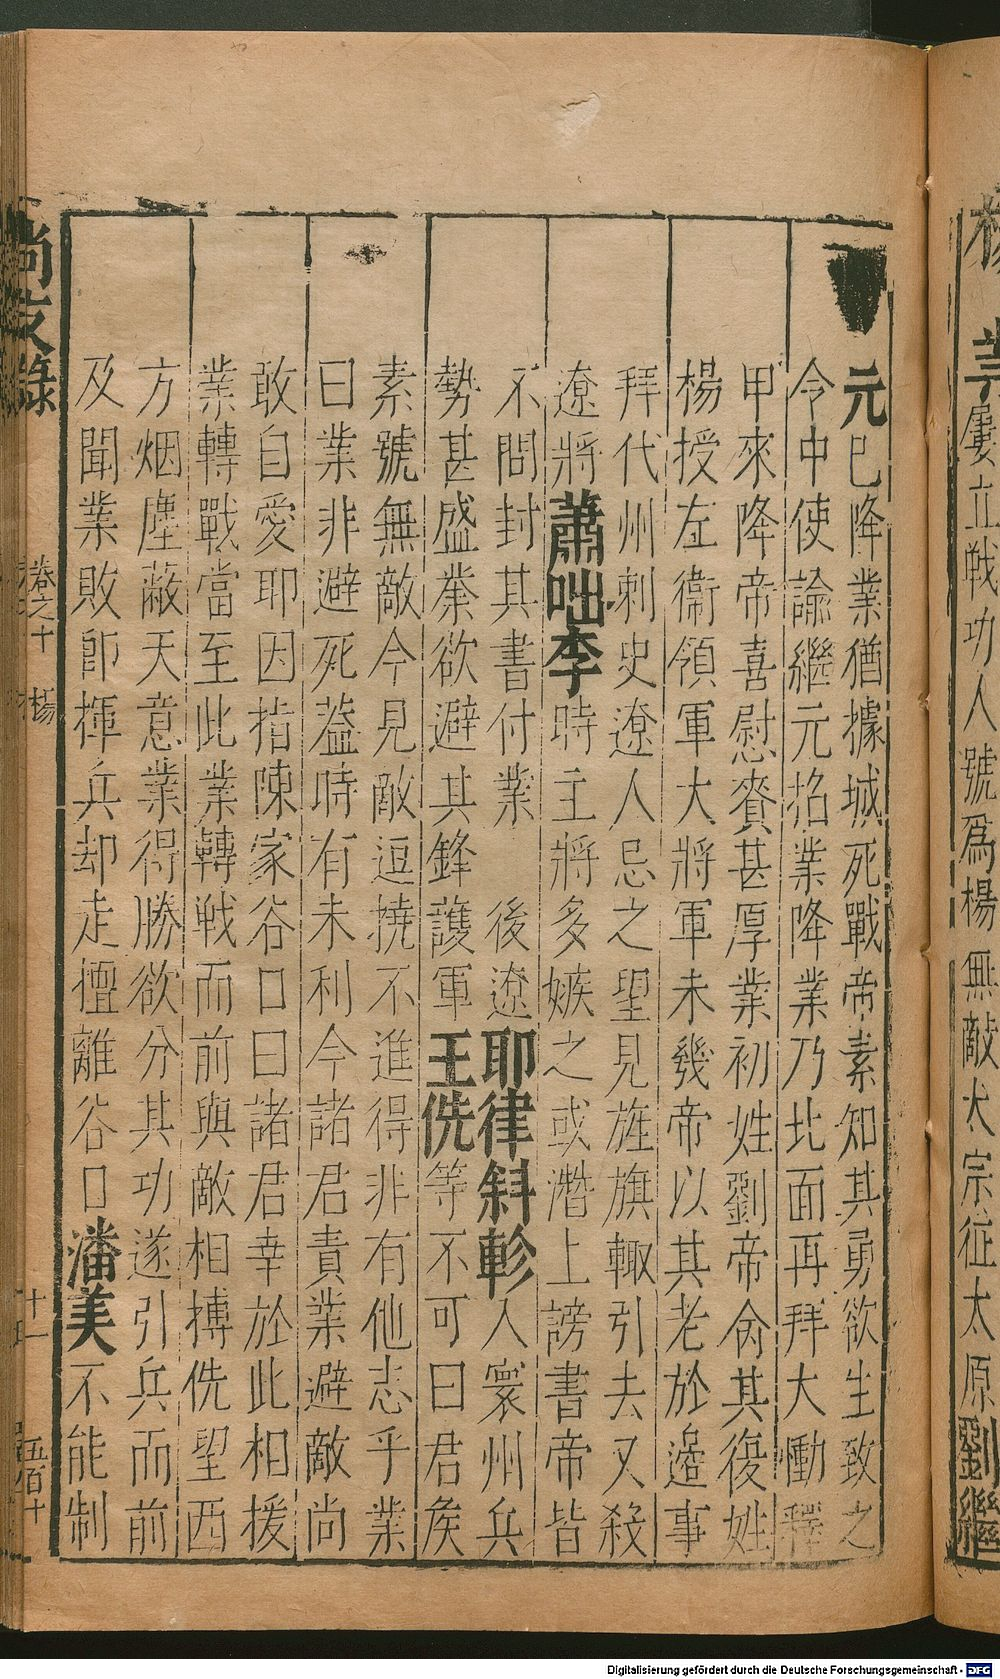 楊業屢立戦功人號為楊無敵太宗征太原劉繼
元巳降業猶據城死戰帝素知其勇欲生致之
令中使諭繼元招業降業乃北面再拜大慟釋
甲來降帝喜慰賚甚厚業初姓劉帝命其復姓
楊授左衞領軍大將軍未幾帝以其老於邊事
拜代州刺史遼人忌之望見旌旗輙引去又殺
遼將蕭咄李時主將多嫉之或潛上謗書帝皆
不問封其書付業　後遼耶律斜軫入寰州兵
勢甚盛業欲避其鋒護軍王侁等不可曰君矦
素號無敵今見敵逗撓不進得非有他志乎業
曰業非避死葢時有未利今諸君責業避敵尚
敢自愛耶因指陳家谷口曰諸君幸於此相援
業轉戰當至此業轉戦而前與敵相搏侁望西
方烟塵蔽天意業得勝欲分其功遂引兵而前
及聞業敗卽揮兵却走擅離谷口潘美不能制
尚友錄　卷之十　楊　十一　五百十
Digitalisierung gefördert durch die Deutsche Forschungsgemeinschaft - DFG